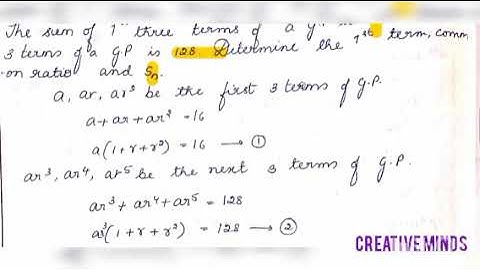 The sum of 1st three terms of a G.P
3 terms of a G.P is 128. Determine the 1st term, comm
on ratio and Sn.
a, ar, ar² be the first 3 terms of G.P.
a + ar + ar² = 16
a(1+r+r²) = 16 → ①
ar³, ar⁴, ar⁵ be the next 3 terms of G.P.
ar³ + ar⁴ + ar⁵ = 128
ar³(1+r+r²) = 128 → ②
CREATIVE MINDS